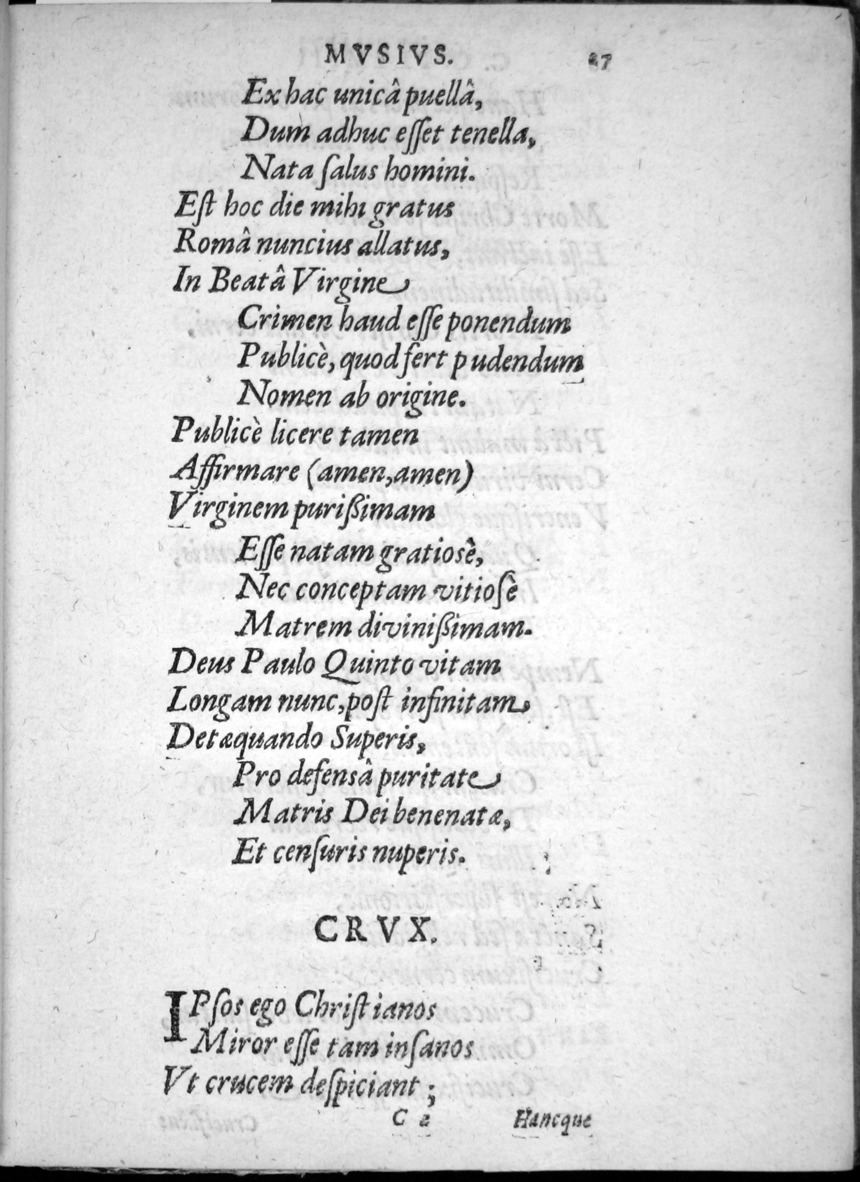 MVSIVS. 27
Ex hac unicâ puellâ,
Dum adhuc eſſet tenella,
Nata ſalus homini.
Eſt hoc die mihi gratus
Româ nuncius allatus,
In Beatâ Virgine
Crimen haud eſſe ponendum
Publicè, quod fert pudendum
Nomen ab origine.
Publicè licere tamen
Affirmare (amen, amen)
Virginem purißimam
Eſſe natam gratiosè,
Nec conceptam vitioſè
Matrem divinißimam.
Deus Paulo Quinto vitam
Longam nunc, poſt infinitam
Det æquando Superis,
Pro defensâ puritate
Matris Dei benenatæ,
Et cenſuris nuperis.
CRVX.
IPſos ego Chriſtianos
Miror eſſe tam inſanos
Vt crucem deſpiciant;
C 2 Hancque